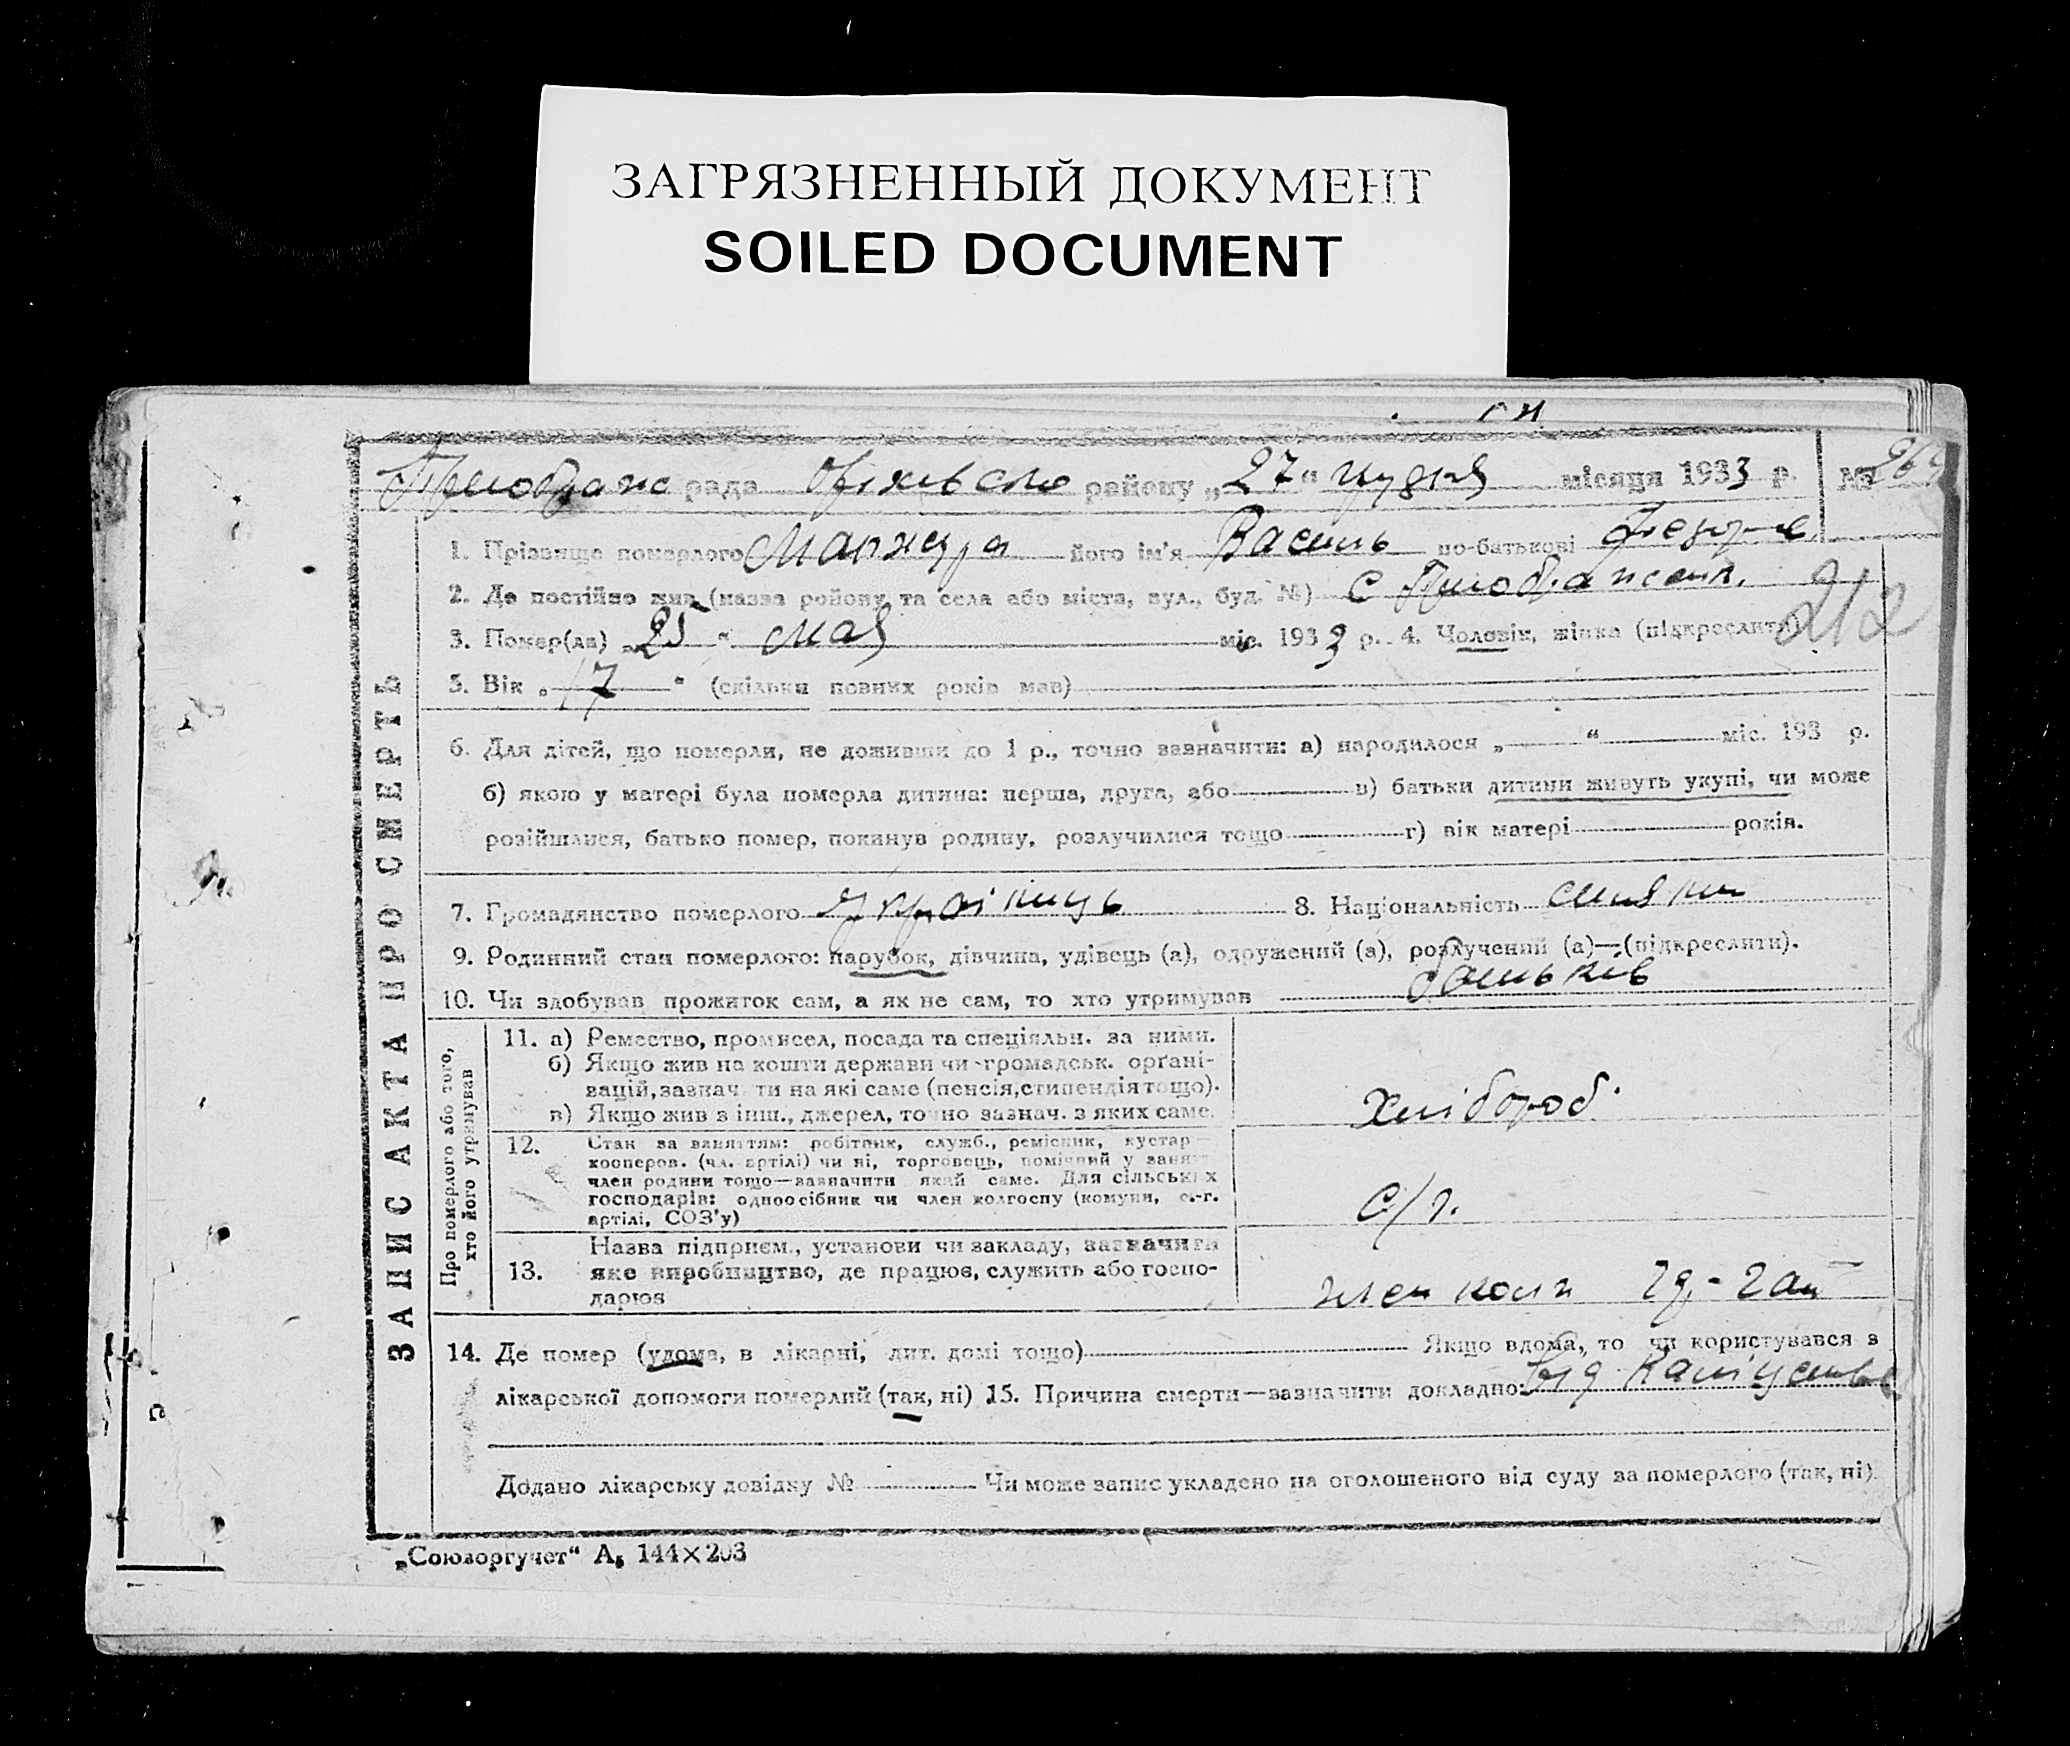 ЗАГРЯЗНЕННЫЙ ДОКУМЕНТ
SOILED DOCUMENT
Преображ рада Оріхівсько району „27“ місяця 1933 р. №
1. Прізвище померлого Манжура його ім'я Василь по-батькові Федоров
2. Де постійно жив (назва району та села або міста, вул., буд. №) с Преображенк.
212
3. Помер(ла) „25“ мая міс. 1933 р. 4. Чоловік, жінка (підкреслити)
5. Вік „17“ (скільки повних років мав)
6. Для дітей, що померли, не доживши до 1 р., точно зазначити: а) народилося „ “ міс. 193 р.
б) якою у матері була померла дитина: перша, друга, або в) батьки дитини живуть укупі, чи може
розійшлися, батько помер, покинув родину, розлучилися тощо г) вік матері років.
7. Громадянство померлого Українець 8. Національність
9. Родинний стан померлого: парубок, дівчина, удівець (а), одружений (а), розлучений (а)—(підкреслити).
10. Чи здобував прожиток сам, а як не сам, то хто утримував батьків
ЗАПИС АКТА ПРО СМЕРТЬ
Про померлого або того, хто його утримував
11. а) Ремество, промисел, посада та спеціяльн. за ними.
б) Якщо жив на кошти держави чи громадськ. органі-
зацій, зазнач ти на які саме (пенсія, стипендія тощо).
в) Якщо жив з інш., джерел, точно зазнач. з яких саме.
Хлібороб.
12. Стан за заняттям: робітник, служб., ремісник, кустар—
кооперов. (чл. артілі) чи ні, торговець, помічний у занят
член родини тощо—зазначити який саме. Для сільських
господарів: одноосібник чи член колгоспу (комуни, с.-г.
артілі, СОЗ'у)
с/г.
13. Назва підприєм., установи чи закладу, зазначити
яке виробництво, де працює, служить або госпо-
дарює
член колг
14. Де помер (удома, в лікарні, дит. домі тощо) Якщо вдома, то чи користувався з
лікарської допомоги померлий (так, ні) 15. Причина смерти—зазначити докладно: від
Додано лікарську довідку № Чи може запис укладено на оголошеного від суду за померлого (так, ні)
„Союзоргучет“ А₅ 144×203